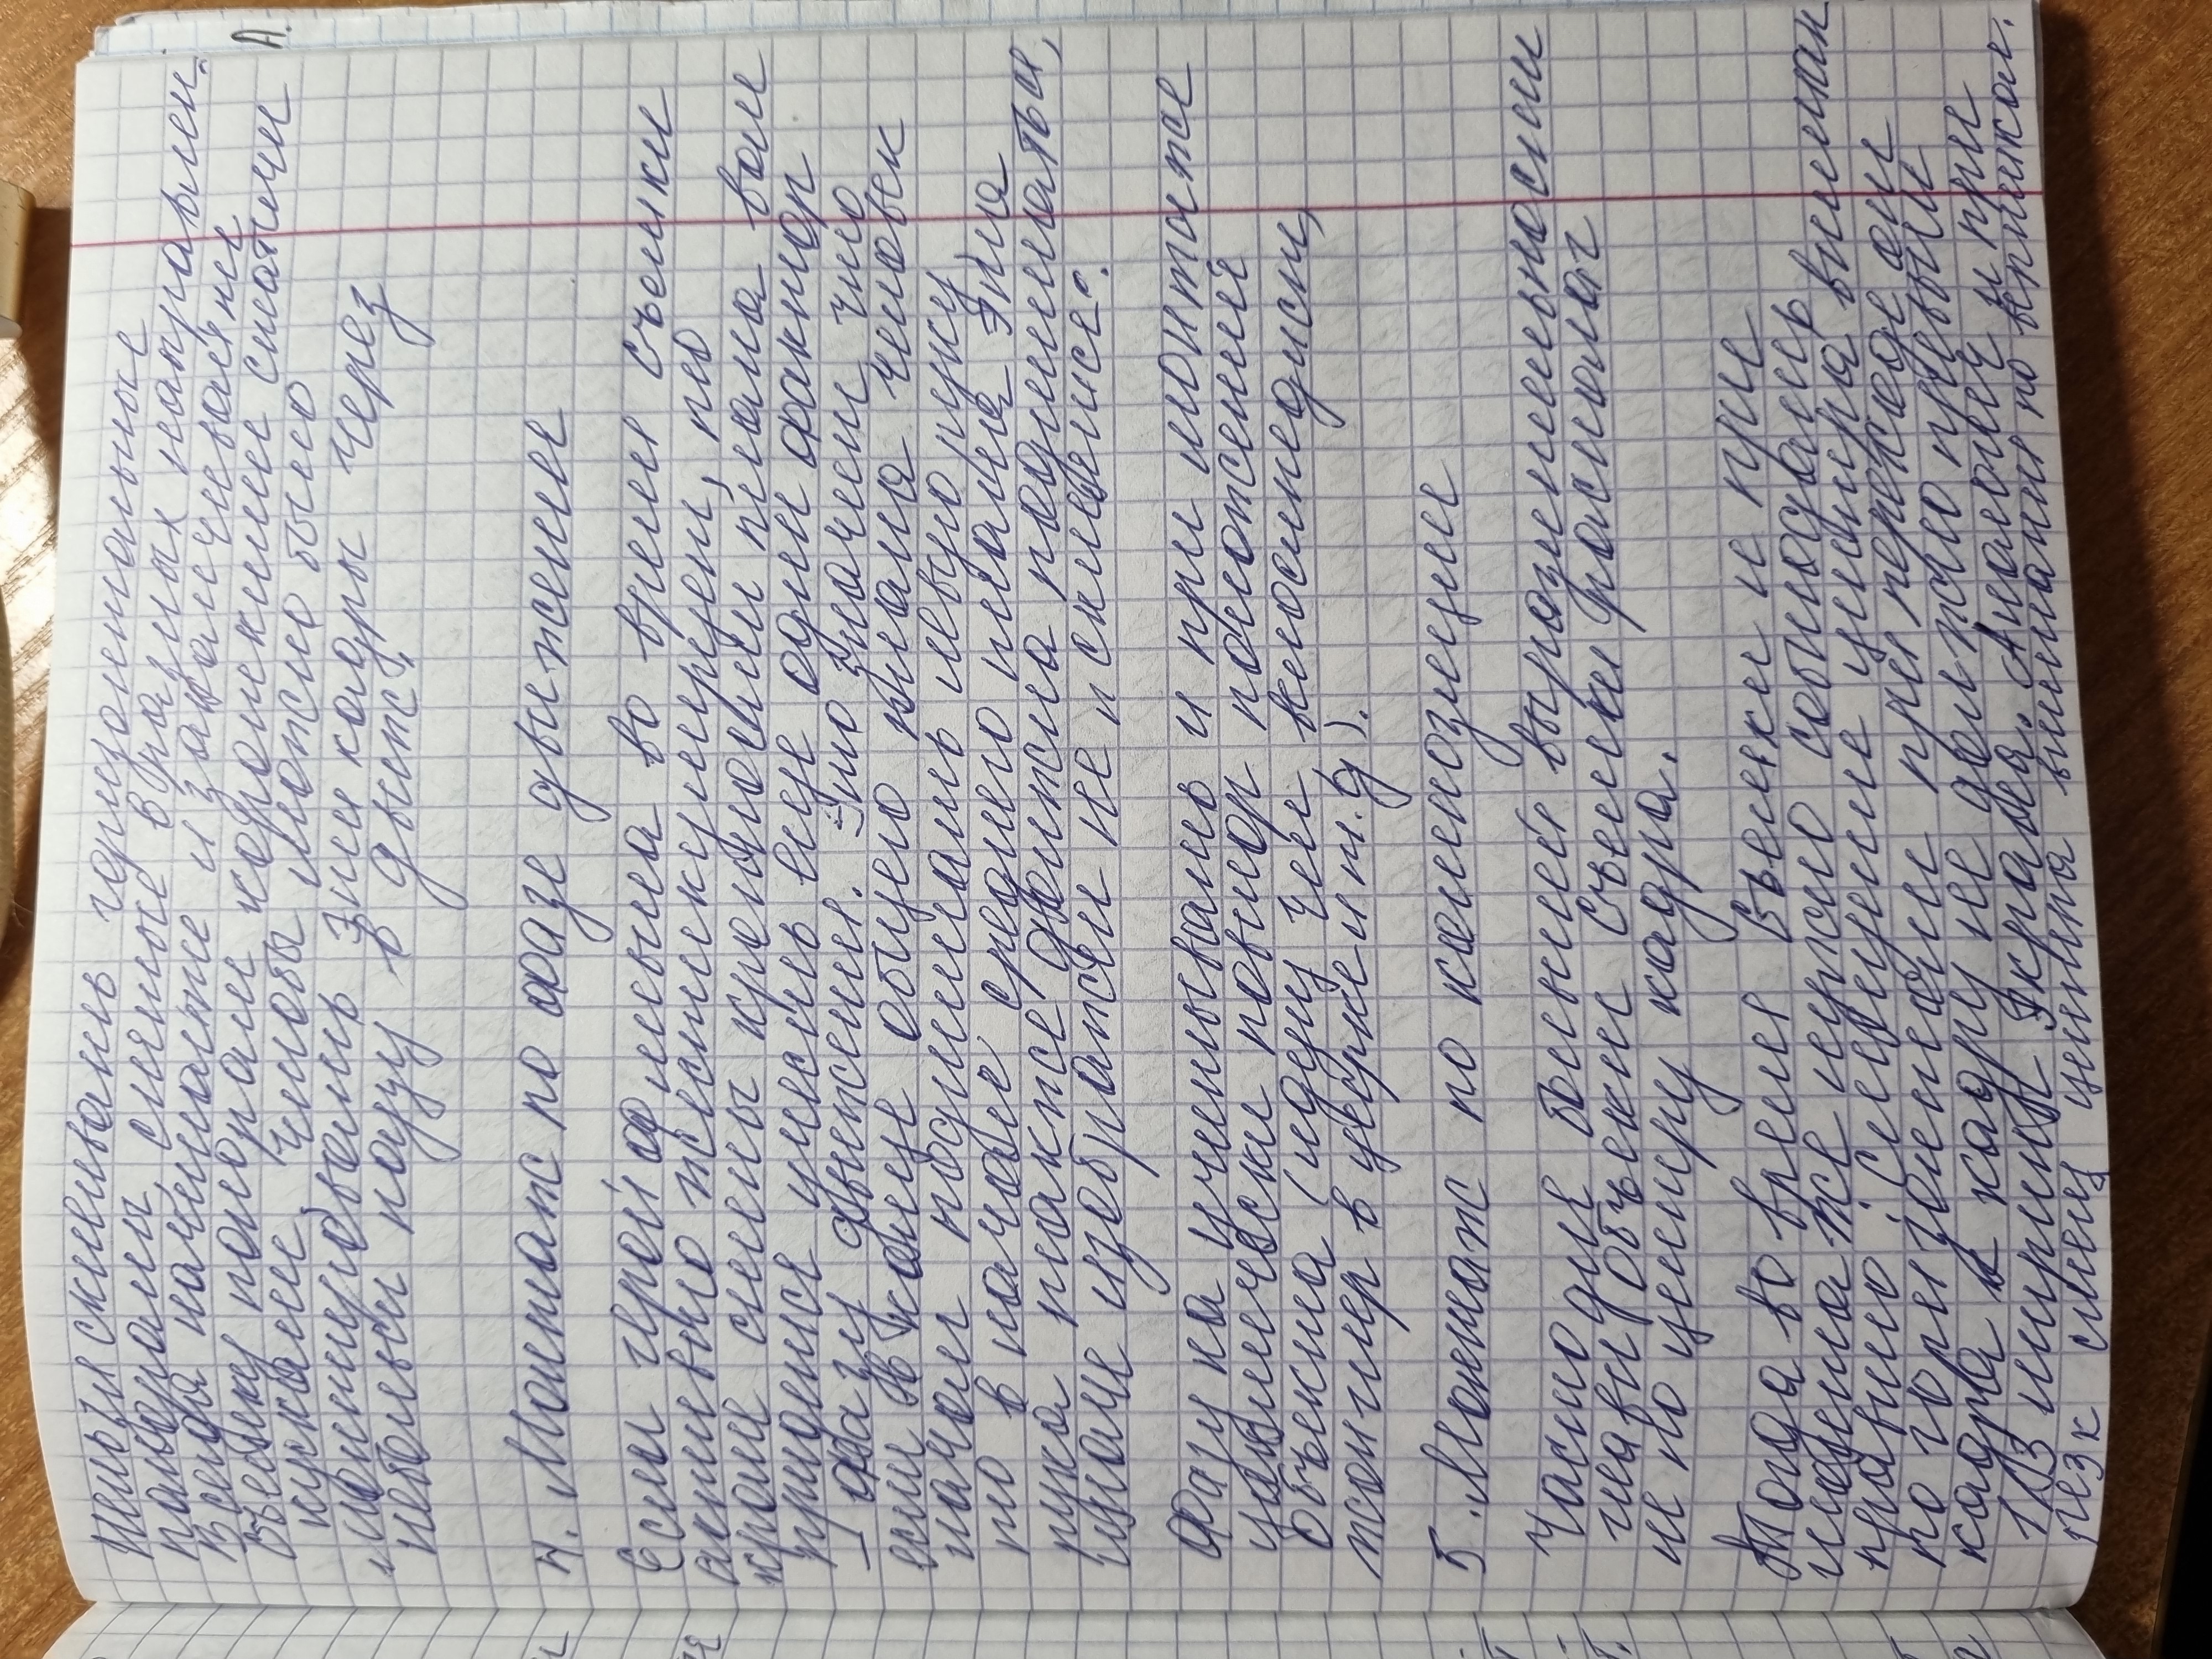 Нельзя склеивать горизонтальные
панорамы, снятые в разных направлен.
Всегда начинайте и заканчивайте
съемку панорам короткими статичн
кусками, чтобы можно было
монтировать эти кадры через
небольш паузу в движ.
4. Монтаж по фазе движения
Если герой фильма во время съемки
активно жестикулирует, то
кроме смены крупности плана вам
придется учесть еще один фактор
– фазу движения. Это значит, что
если в конце общего плана человек
начал поднимать левую руку,
то в начале среднего плана эта
рука также должна подниматься,
иначе изображен не "склеятся".
Фазу на учитывать и при монтаже
циклически повтор положений
объекта (идущ чел, велосипедист,
жонглер в цирке и т.д).
5. Монтаж по композиции
Часто для большей выразительности
главн объект съемки располаг
не по центру кадра.
Тогда во время съемки и при
монтаже нужно соблюдать
правило: смещение центра вниман
по горизонтали при переходе от
кадра к кадру не должно превыш
1/3 ширины экрана. Аналогич и при
резк смещ центра внимания по вертикал.
А.